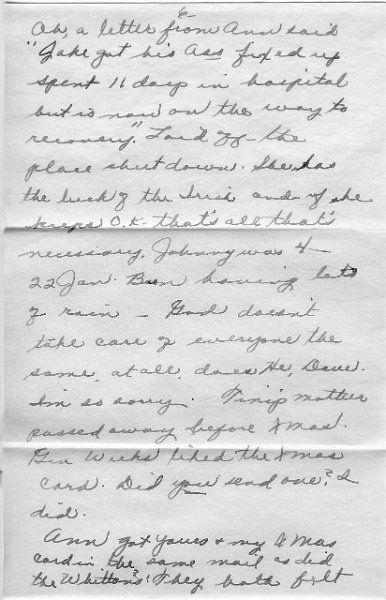 6
Oh, a letter from Ann said
"Jake got his Ass fixed up
spent 11 days in hospital
but is now on the way to
recovery". Laid off - the
place shut down. She has
the luck of the Irish and if she
keeps O.K. that's all that's
necessary. Johnny was 4
22 Jan. Been having lots
of rain - God doesn't
take care of everyone the
same, at all, does He, Dave.
I'm so sorry. mother
passed away before Xmas.
Gen Weeks liked the Xmas
card. Did you send one? I
did.
Ann got yours & my Xmas
card in the same mail as did
the Whittons! They both felt